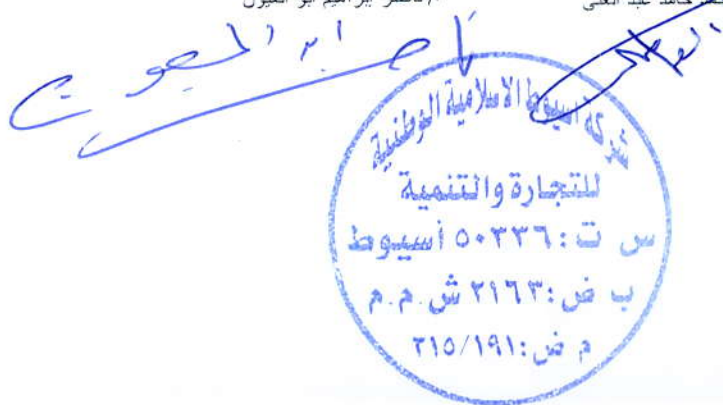 حامد عبد الغنى
ناصر ابراهيم ابو العيون
شركة اسيوط الاسلامية الوطنية
للتجارة والتنمية
س ت : ٥٠٣٣٦ أسيوط
ب ض : ٢١٦٣ ش.م.م
م ض : ٣١٥/١٩١